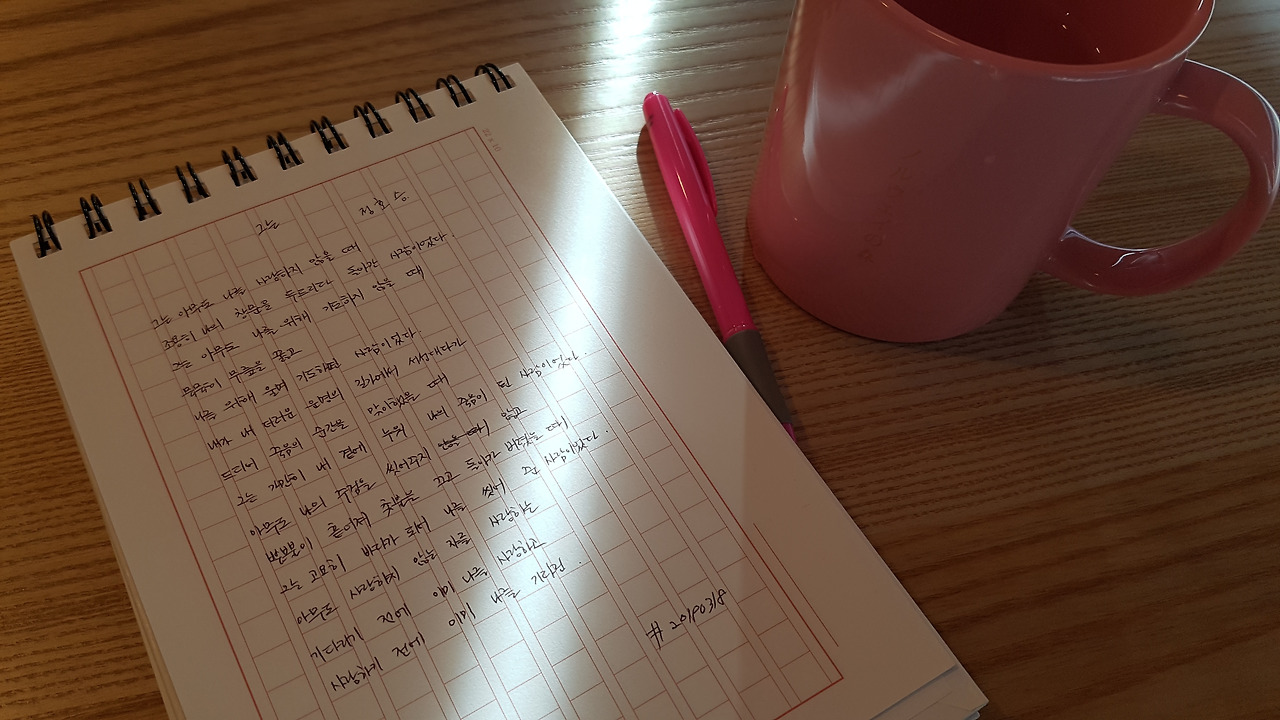 그는 정호승
그는 아무도 나를 사랑하지 않을 때
조용히 나의 창문을 두드리다 돌아간 사람이었다.
그는 아무도 나를 위해 기도하지 않을 때
묵묵히 무릎을 꿇고
나를 위해 울며 기도하던 사람이었다.
내가 내 더러운 운명의 길가에서 서성대다가
드디어 죽음의 순간을 맞이했을 때
그는 가만히 내 곁에 누워 나의 죽음이 된 사람이었다.
아무도 나의 주검을 씻어주지 않을 때 않고
뿔뿔이 흩어져 촛불을 끄고 돌아가 버렸을 때
그는 고요히 바다가 되어 나를 씻어 준 사람이었다.
아무도 사랑하지 않는 자를 사랑하는
기다리기 전에 이미 나를 사랑하고
사랑하기 전에 이미 나를 기다린.
# 20190318
22 x 10